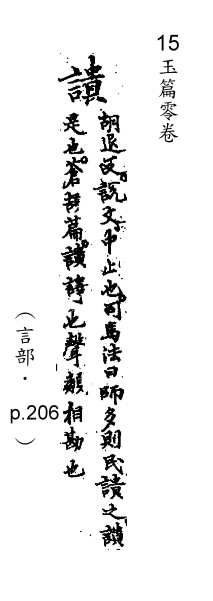 15玉篇零卷
讃
胡退反說文中止也司馬法曰師多則民讃之讃
是也蒼頡篇讃讃也聲類相勘也
（言部．p.206）